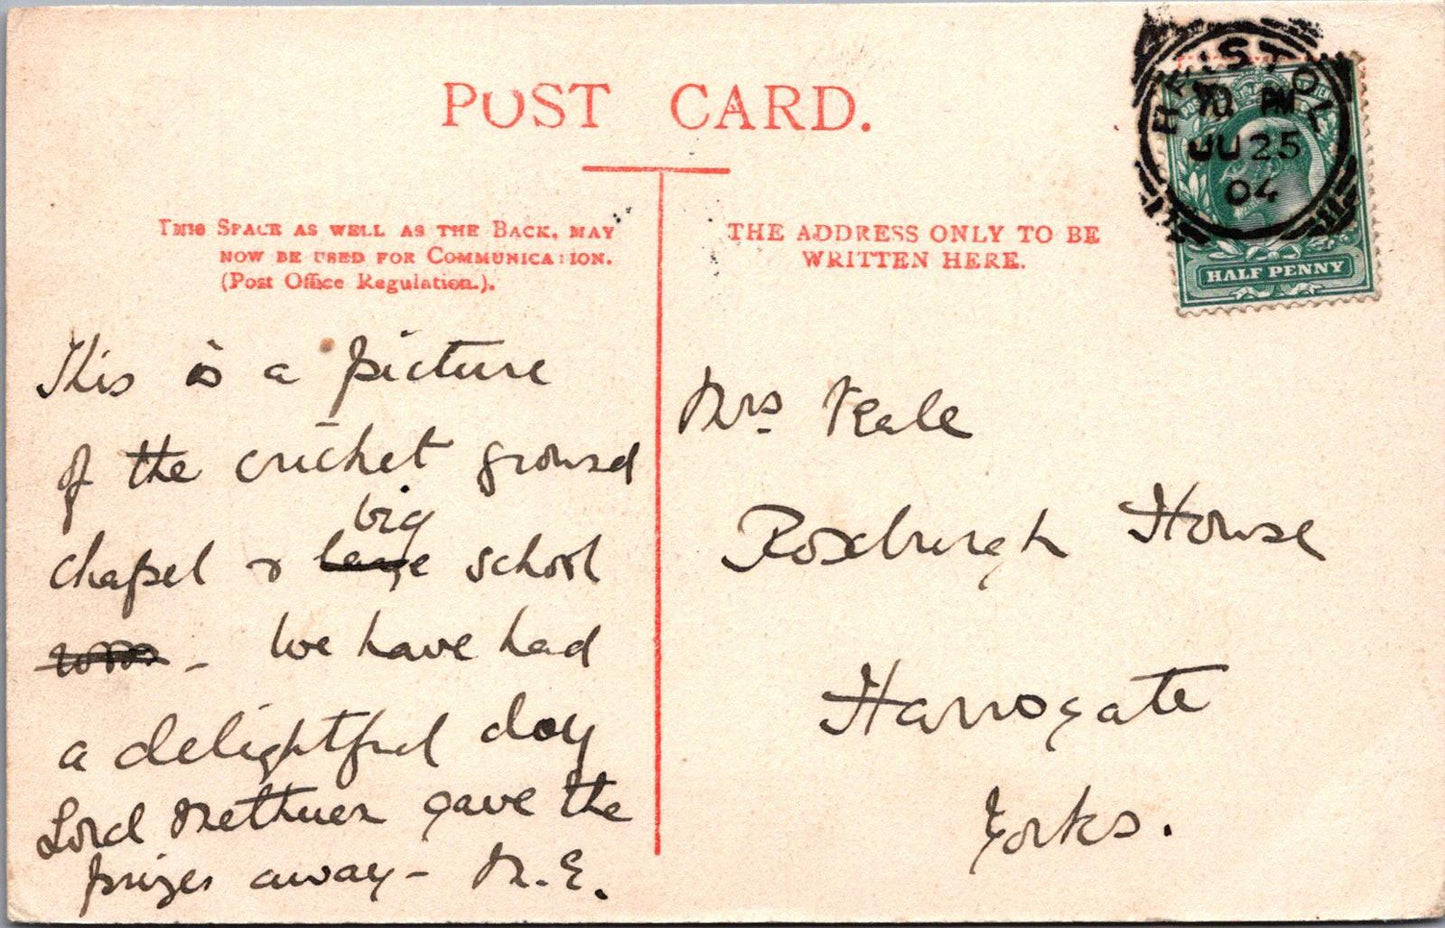 POST CARD.
THIS SPACE AS WELL AS THE BACK, MAY
NOW BE USED FOR COMMUNICATION.
(Post Office Regulation.).
THE ADDRESS ONLY TO BE
WRITTEN HERE.
BRISTOL
10 PM
JU 25
04
HALF PENNY
This is a picture
of the cricket ground
big
chapel & large school
- We have had
a delightful day
Lord Methuen gave the
prizes away - M.E.
Mrs. Veale
Roxburgh House
Harrogate
Yorks.